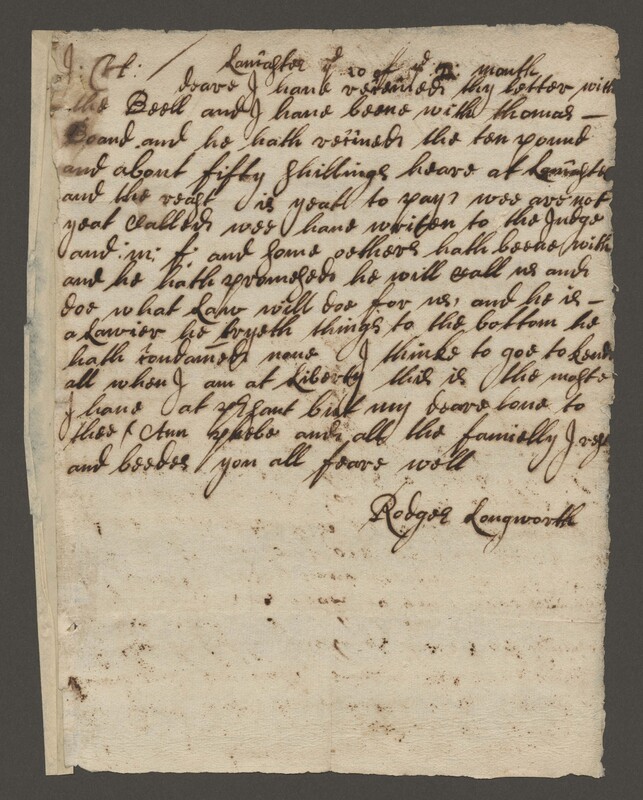 J: H:
Lancaster ye 20 of ye 2: month
deare J have receined thy letter with
the Beell and J have beene with thomas —
Boand and he hath reciued the ten pound
and about fifty shillings heare at Lancaster
and the reast is yeatt to pay: wee are not
yeat Called wee have writen to the Judge
and: m: f: and some oethers hath beene with
and he hath promesed he will Call us and
doe what Law will doe for us, and he is —
a Lawier he tryeth things to the bottom he
hath Condamed none J thinke to goe to Kend
all when J am at Liberty this is the moste
J have at present but my deare Love to
thee Ann phebe and all the familly J rest
and beedes you all feare well
Rodger Longworth